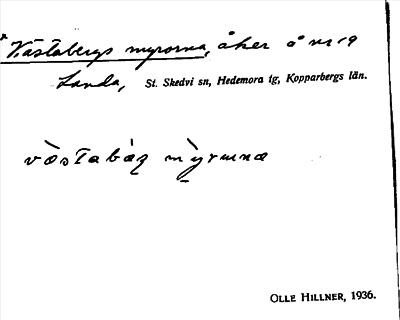 Västabergs myrorna, åker å nr 19
Landa, St. Skedvi sn, Hedemora tg, Kopparbergs län.
vàstabàƶ mỳrunæ
OLLE HILLNER, 1936.